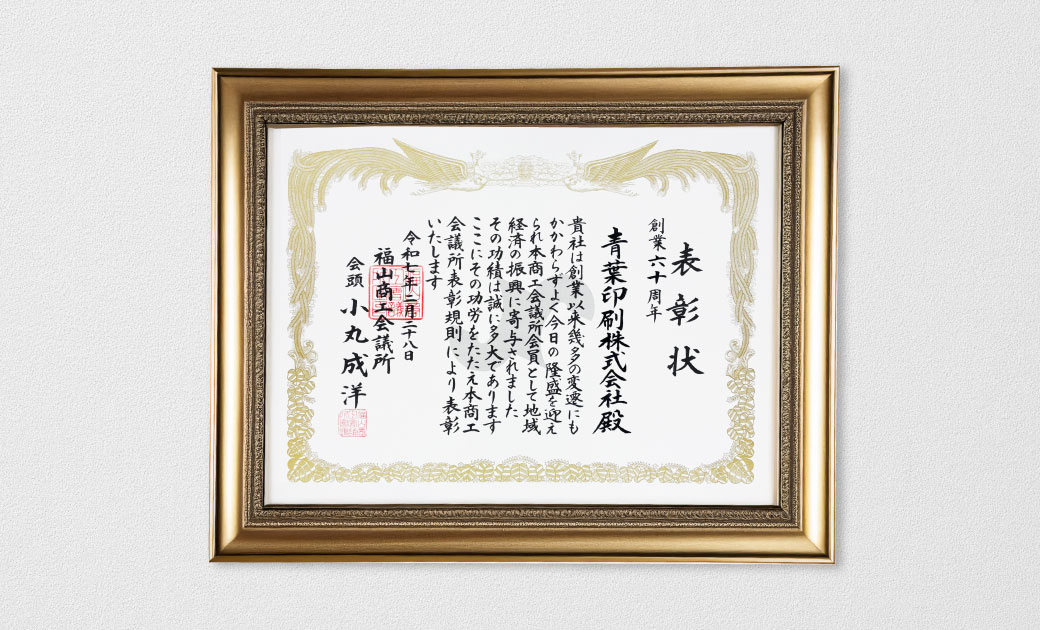 表彰状
創業六十周年
青葉印刷株式会社殿
貴社は創業以来幾多の変遷にも
かかわらずよく今日の隆盛を迎え
られ本商工会議所会員として地域
経済の振興に寄与されました
その功績は誠に多大であります
ここにその功労をたたえ本商工
会議所表彰規則により表彰
いたします
令和七年二月二十八日
福山商工会議所
会頭 小丸成洋